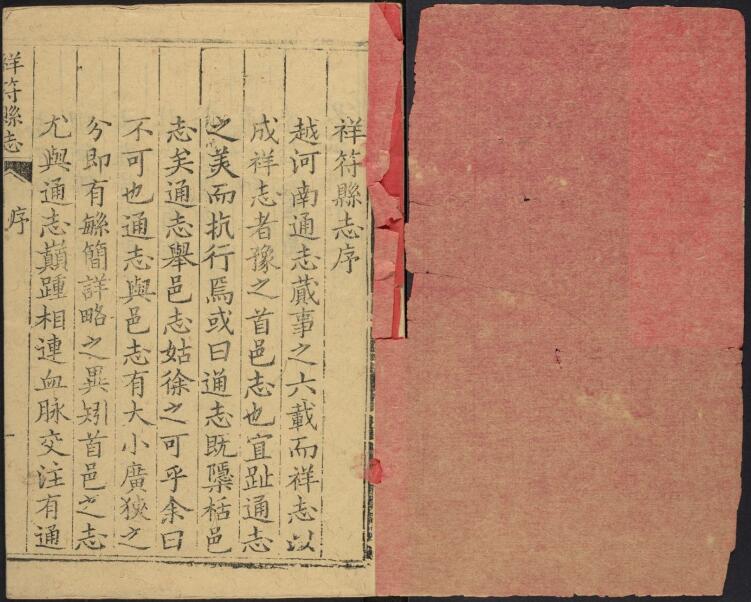 祥符縣志序
越河南通志蕆事之六載而祥志以
成祥志者豫之首邑志也宜趾通志
之美而抗行焉或曰通志既櫽栝邑
志矣通志舉邑志姑徐之可乎余曰
不可也通志與邑志有大小廣狹之
分即有繁簡詳略之異矧首邑之志
尤與通志巔踵相連血脉交注有通
祥符縣志
序